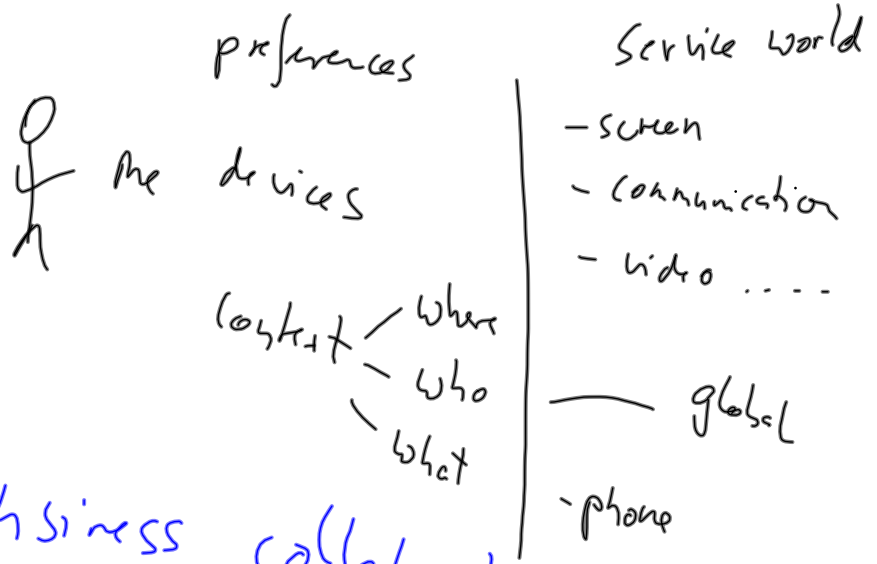 preferences
me devices
context
where
who
what
service world
- screen
- communication
- video ....
global
- phone